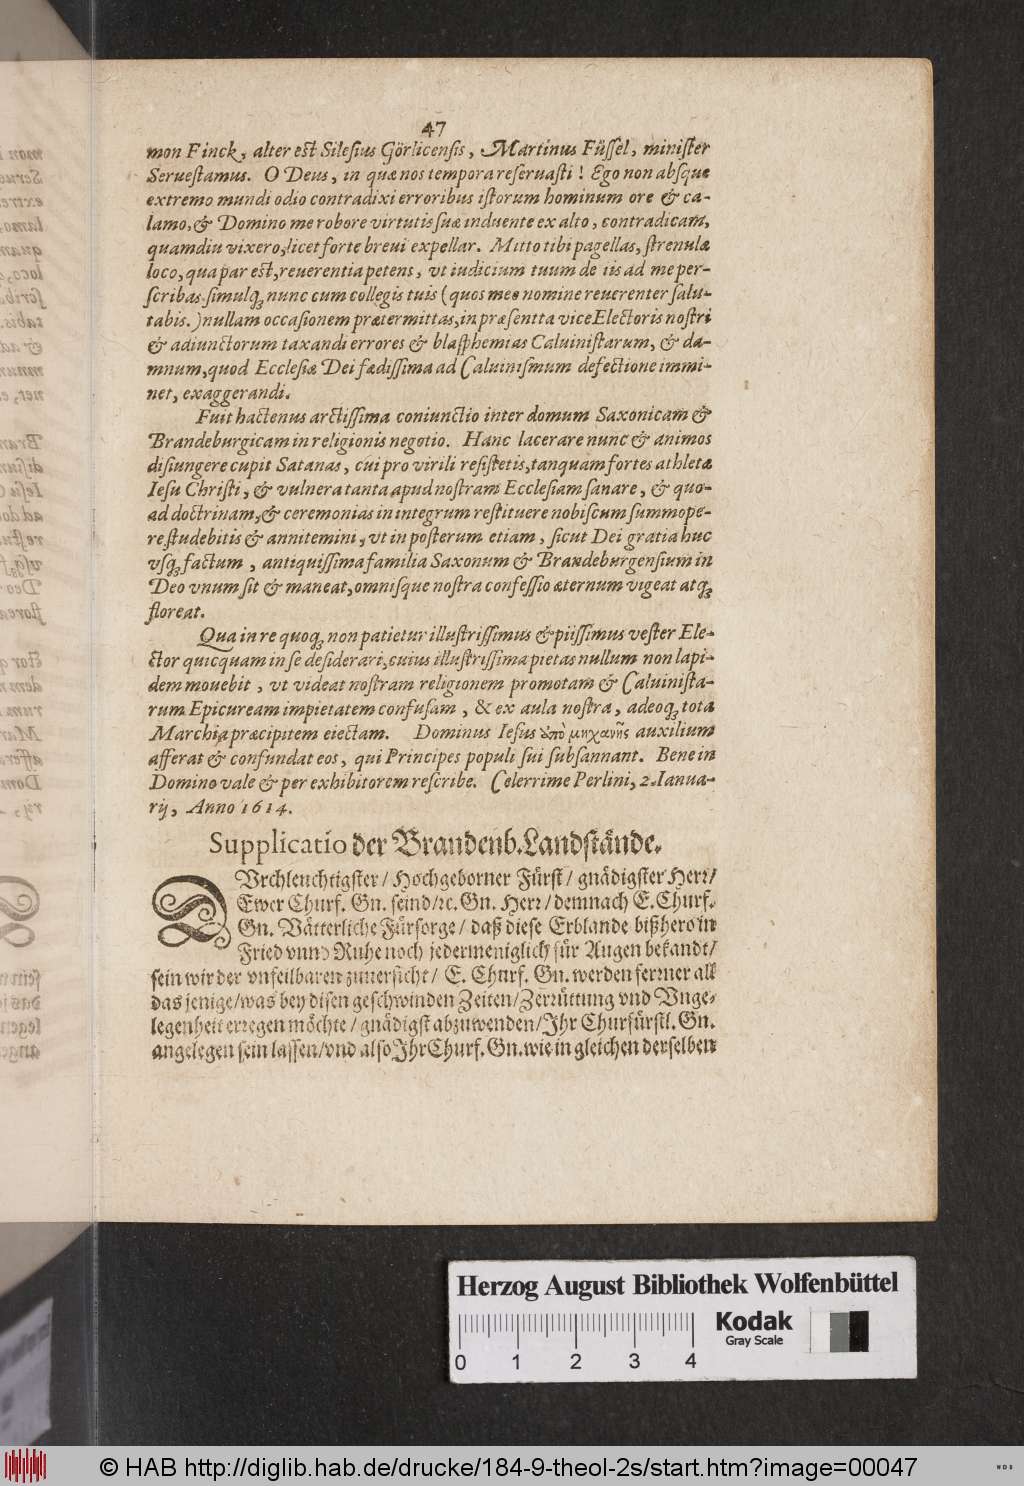 47
mon Finck, alter est Silesius Görlicensis, Martinus Füssel, minister
Seruestamus. O Deus, in quæ nos tempora reseruasti! Ego non absque
extremo mundi odio contradixi erroribus istorum hominum ore & ca-
lamo, & Domino me robore virtutis suæ induente ex alto, contradicam,
quamdiu vixero, licet forte breui expellar. Mitto tibi pagellas, strenulæ
loco, qua par est, reuerentia petens, vt iudicium tuum de iis ad me per-
scribas, simulq; nunc cum collegis tuis (quos meo nomine reuerenter salu-
tabis.) nullam occasionem prætermittas, in præsentia vice Electoris nostri
& adiunctorum taxandi errores & blasphemias Caluinistarum, & da-
mnum, quod Ecclesiæ Dei fædissima ad Caluinismum defectione immi-
net, exaggerandi.
Fuit hactenus arctissima coniunctio inter domum Saxonicam &
Brandeburgicam in religionis negotio. Hanc lacerare nunc & animos
disiungere cupit Satanas, cui pro virili resistetis, tanquam fortes athletæ
Iesu Christi, & vulnera tanta apud nostram Ecclesiam sanare, & quo-
ad doctrinam, & ceremonias in integrum restituere nobiscum summope-
re studebitis & annitemini, vt in posterum etiam, sicut Dei gratia huc
vsq; factum, antiquissima familia Saxonum & Brandeburgensium in
Deo vnum sit & maneat, omnisque nostra confessio æternum vigeat atq;
floreat.
Qua in re quoq; non patietur illustrissimus & piissimus vester Ele-
ctor quicquam in se desiderari, cuius illustrissima pietas nullum non lapi-
dem mouebit, vt videat nostram religionem promotam & Caluinista-
rum Epicuream impietatem confusam, & ex aula nostra, adeoq; tota
Marchia præcipitem eiectam. Dominus Iesus ἀπὸ μηχανῆς auxilium
afferat & confundat eos, qui Principes populi sui subsannant. Bene in
Domino vale & per exhibitorem rescribe. Celerrime Perlini, 2. Ianua-
rij, Anno 1614.
Supplicatio der Brandenb. Landstände.
DVrchleuchtigster / Hochgeborner Fürst / gnädigster Herr/
Ewer Churf. Gn. seind /rc. Gn. Herr / demnach E. Churf.
Gn. Vätterliche Fürsorge / daß diese Erblande bißhero in
Fried vnnd Ruhe noch jedermeniglich für Augen bekandt/
sein wir der vnfeilbaren zuuersicht / E. Churf. Gn. werden ferrner all
das jenige/was bey disen geschwinden Zeiten/Zerrüttung vnd Vnge-
legenheit erregen möchte / gnädigst abzuwenden/Ihr Churfürstl. Gn.
angelegen sein lassen/vnd also Ihr Churf. Gn. wie in gleichen derselben
Herzog August Bibliothek Wolfenbüttel
Kodak
Gray Scale
0 1 2 3 4
© HAB http://diglib.hab.de/drucke/184-9-theol-2s/start.htm?image=00047